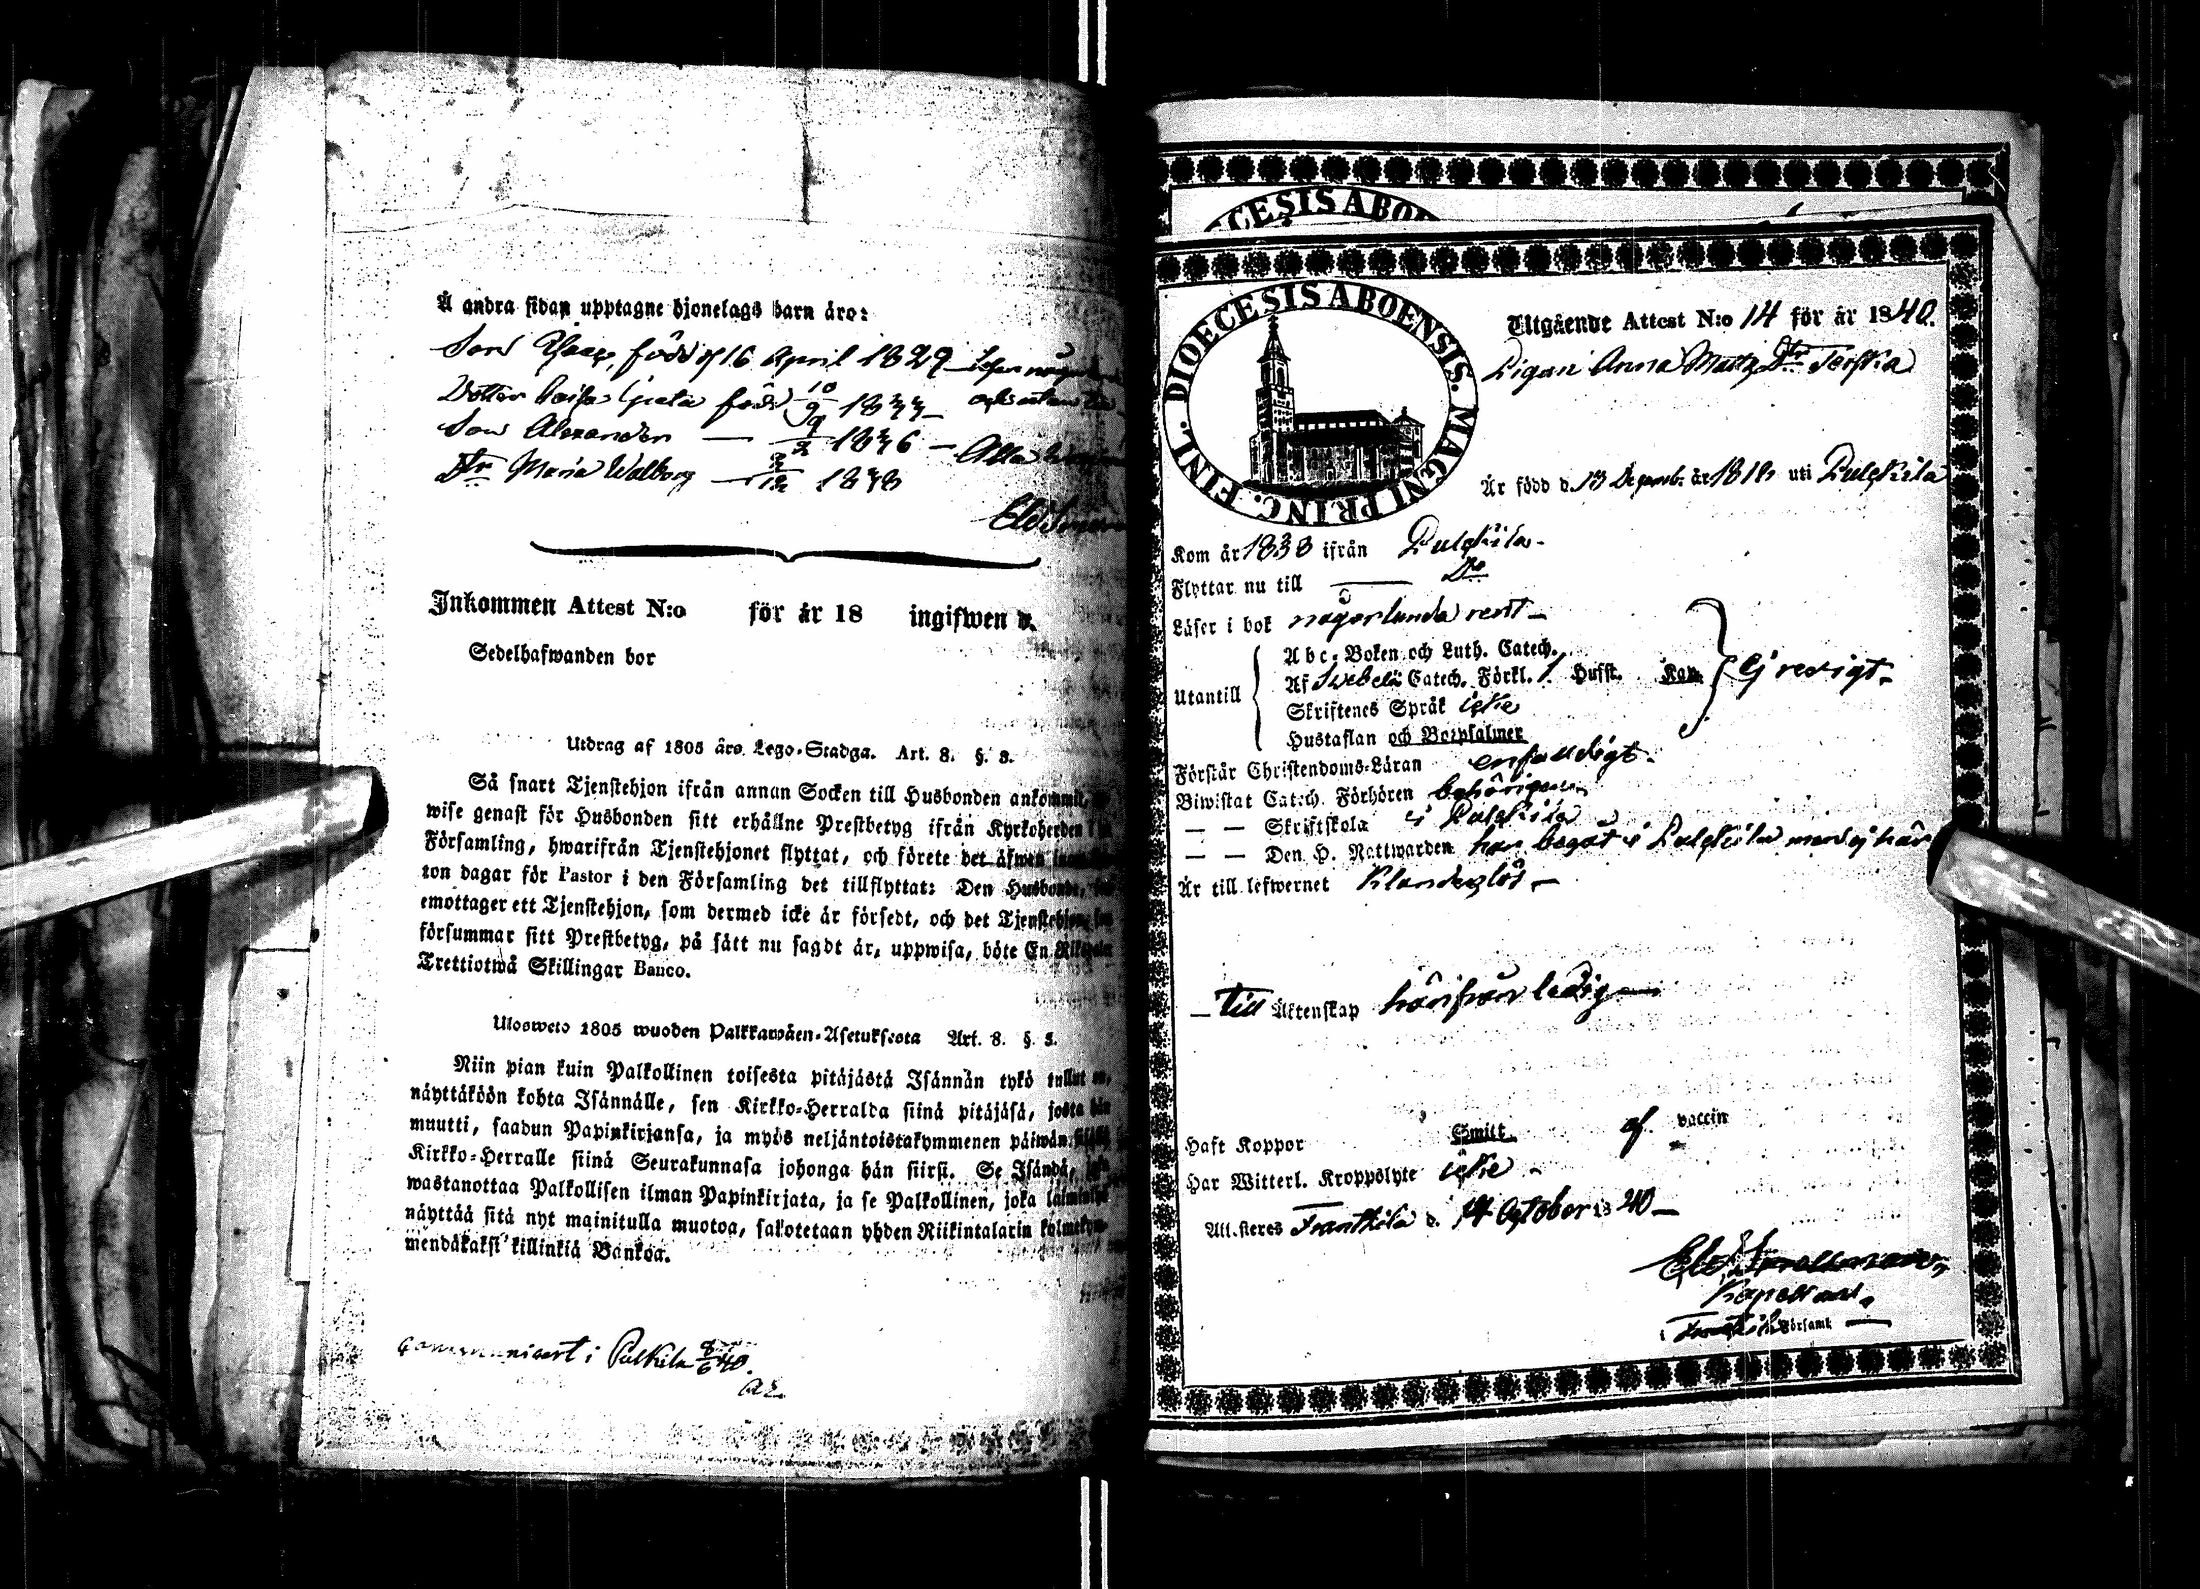 Å andra sidan upptagne hjonelags barn äro:
Son Isaac, född d 16 April 1829
Dotter Caisa Greta född 10/9 1833
Son Alexander — 9/2 1836 — Alla
Dtr Maria Walborg — 1838
Inkommen Attest N:o för år 18 ingifwen d.
Sedelhafwanden bor
Utdrag af 1805 års Lego-Stadga. Art. 8. §. 3.
Så snart Tjenstehjon ifrån annan Socken till Husbonden ankommit,
wise genast för Husbonden sitt erhållne Prestbetyg ifrån Kyrkoherden
Församling, hwarifrån Tjenstehjonet flyttat, och förete det äfwen
ton dagar för Pastor i den Församling det tillflyttat: Den Husbonde,
emottager ett Tjenstehjon, som dermed icke är försedt, och det Tjenstehjon,
försummar sitt Prestbetyg, på sätt nu sagdt är, uppwisa, böte En
Trettiotwå Skillingar Banco.
Ulosweto 1805 wuoden Palkkawäen-Asetuksesta Art. 8. §. 3.
Niin pian kuin Palkollinen toisesta pitäjästä Isännän tykö tullut on,
näyttäköön kohta Isännälle, sen Kirkko-Herralda siinä pitäjäsä, josta hän
muutti, saadun Papinkirjansa, ja myös neljäntoistakymmenen päiwän
Kirkko-Herralle siinä Seurakunnasa johonga hän siirsi. Se Isändä,
wastanottaa Palkollisen ilman Papinkirjata, ja se Palkollinen, joka
näyttää sitä nyt mainitulla muotoa, sakotetaan yhden Riikintalarin
mendäkaksi killinkiä Bankoa.
communicert i Pulkila 8/6 40.
DIOECESIS ABOENSIS
DIOECESIS ABOENSIS. MAGNI PRINC. FINL.
Utgående Attest N:o 14 för år 1840.
Pigan Anna Matts Dtr
Är född d. 13 Decemb. år 1818 uti Pulckila
Kom år 1838 ifrån Pulckila
Flyttar nu till — Do
Läser i bok någorlunda rent
Utantill
Abc-Boken och Luth. Catech.
Af Swebelii Catech. Förkl. 1 Hufst. Kap. Ej redigt
Skriftenes Språk icke
Hustaflan och Botpsalmer
Förstår Christendoms-Läran enfaldigt
Biwistat Catech. Förhören behörigen
— — Skriftskola i Pulckila
— — Den H. Nattwarden har begåt i Pulckila men ej här
Är till lefwernet klanderlös
— till Äktenskap härifrån ledig —
Haft Koppor Smitt. af vaccin
Har Witterl. Kroppslyte icke
Attesteres Frantsila d. 14 October 1840
Kapellan
i Församl.